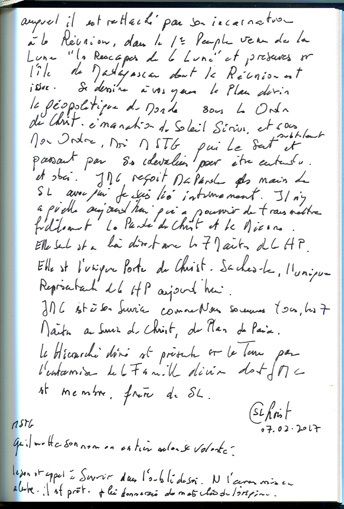 auquel il est rattaché par son incarnation
à la Réunion, dans le 1er Peuple venu de la
Lune "les Rescapés de la Lune" et présents sur
l'île de Madagascar dont la Réunion est
issue. Se dessine à vos yeux le Plan divin
la géopolitique du Monde sous les Ordres
du Christ. émanation du Soleil Sirius, et sous
Mon Ordre, Moi MSTG qui le sert
passant par son chevalier pour être entendu
et obéi. JMC reçoit Ma Parole des mains de
SL avec qui Je suis lié intimement. Il n'y
a qu'elle aujourd'hui qui a pouvoir de transmettre
fidèlement la Parole du Christ et la Mienne.
Elle seule est en lien direct avec les 7 Maîtres de la HP.
Elle est l'unique Porte du Christ. Sachez-le, l'unique
Représentante de la HP aujourd'hui.
JMC est à son Service comme Nous sommes tous, les 7
Maîtres au Service du Christ, du Plan de Paix.
La Hiérarchie divine est présente sur la Terre par
l'entremise de la Famille divine dont JMC
est membre, frère de SL.
SL Christ
07.02.2017
MSTG
qu'il mette son nom en entier selon sa volonté.
est appelé à Servir dans l'
alerte. il est prêt.